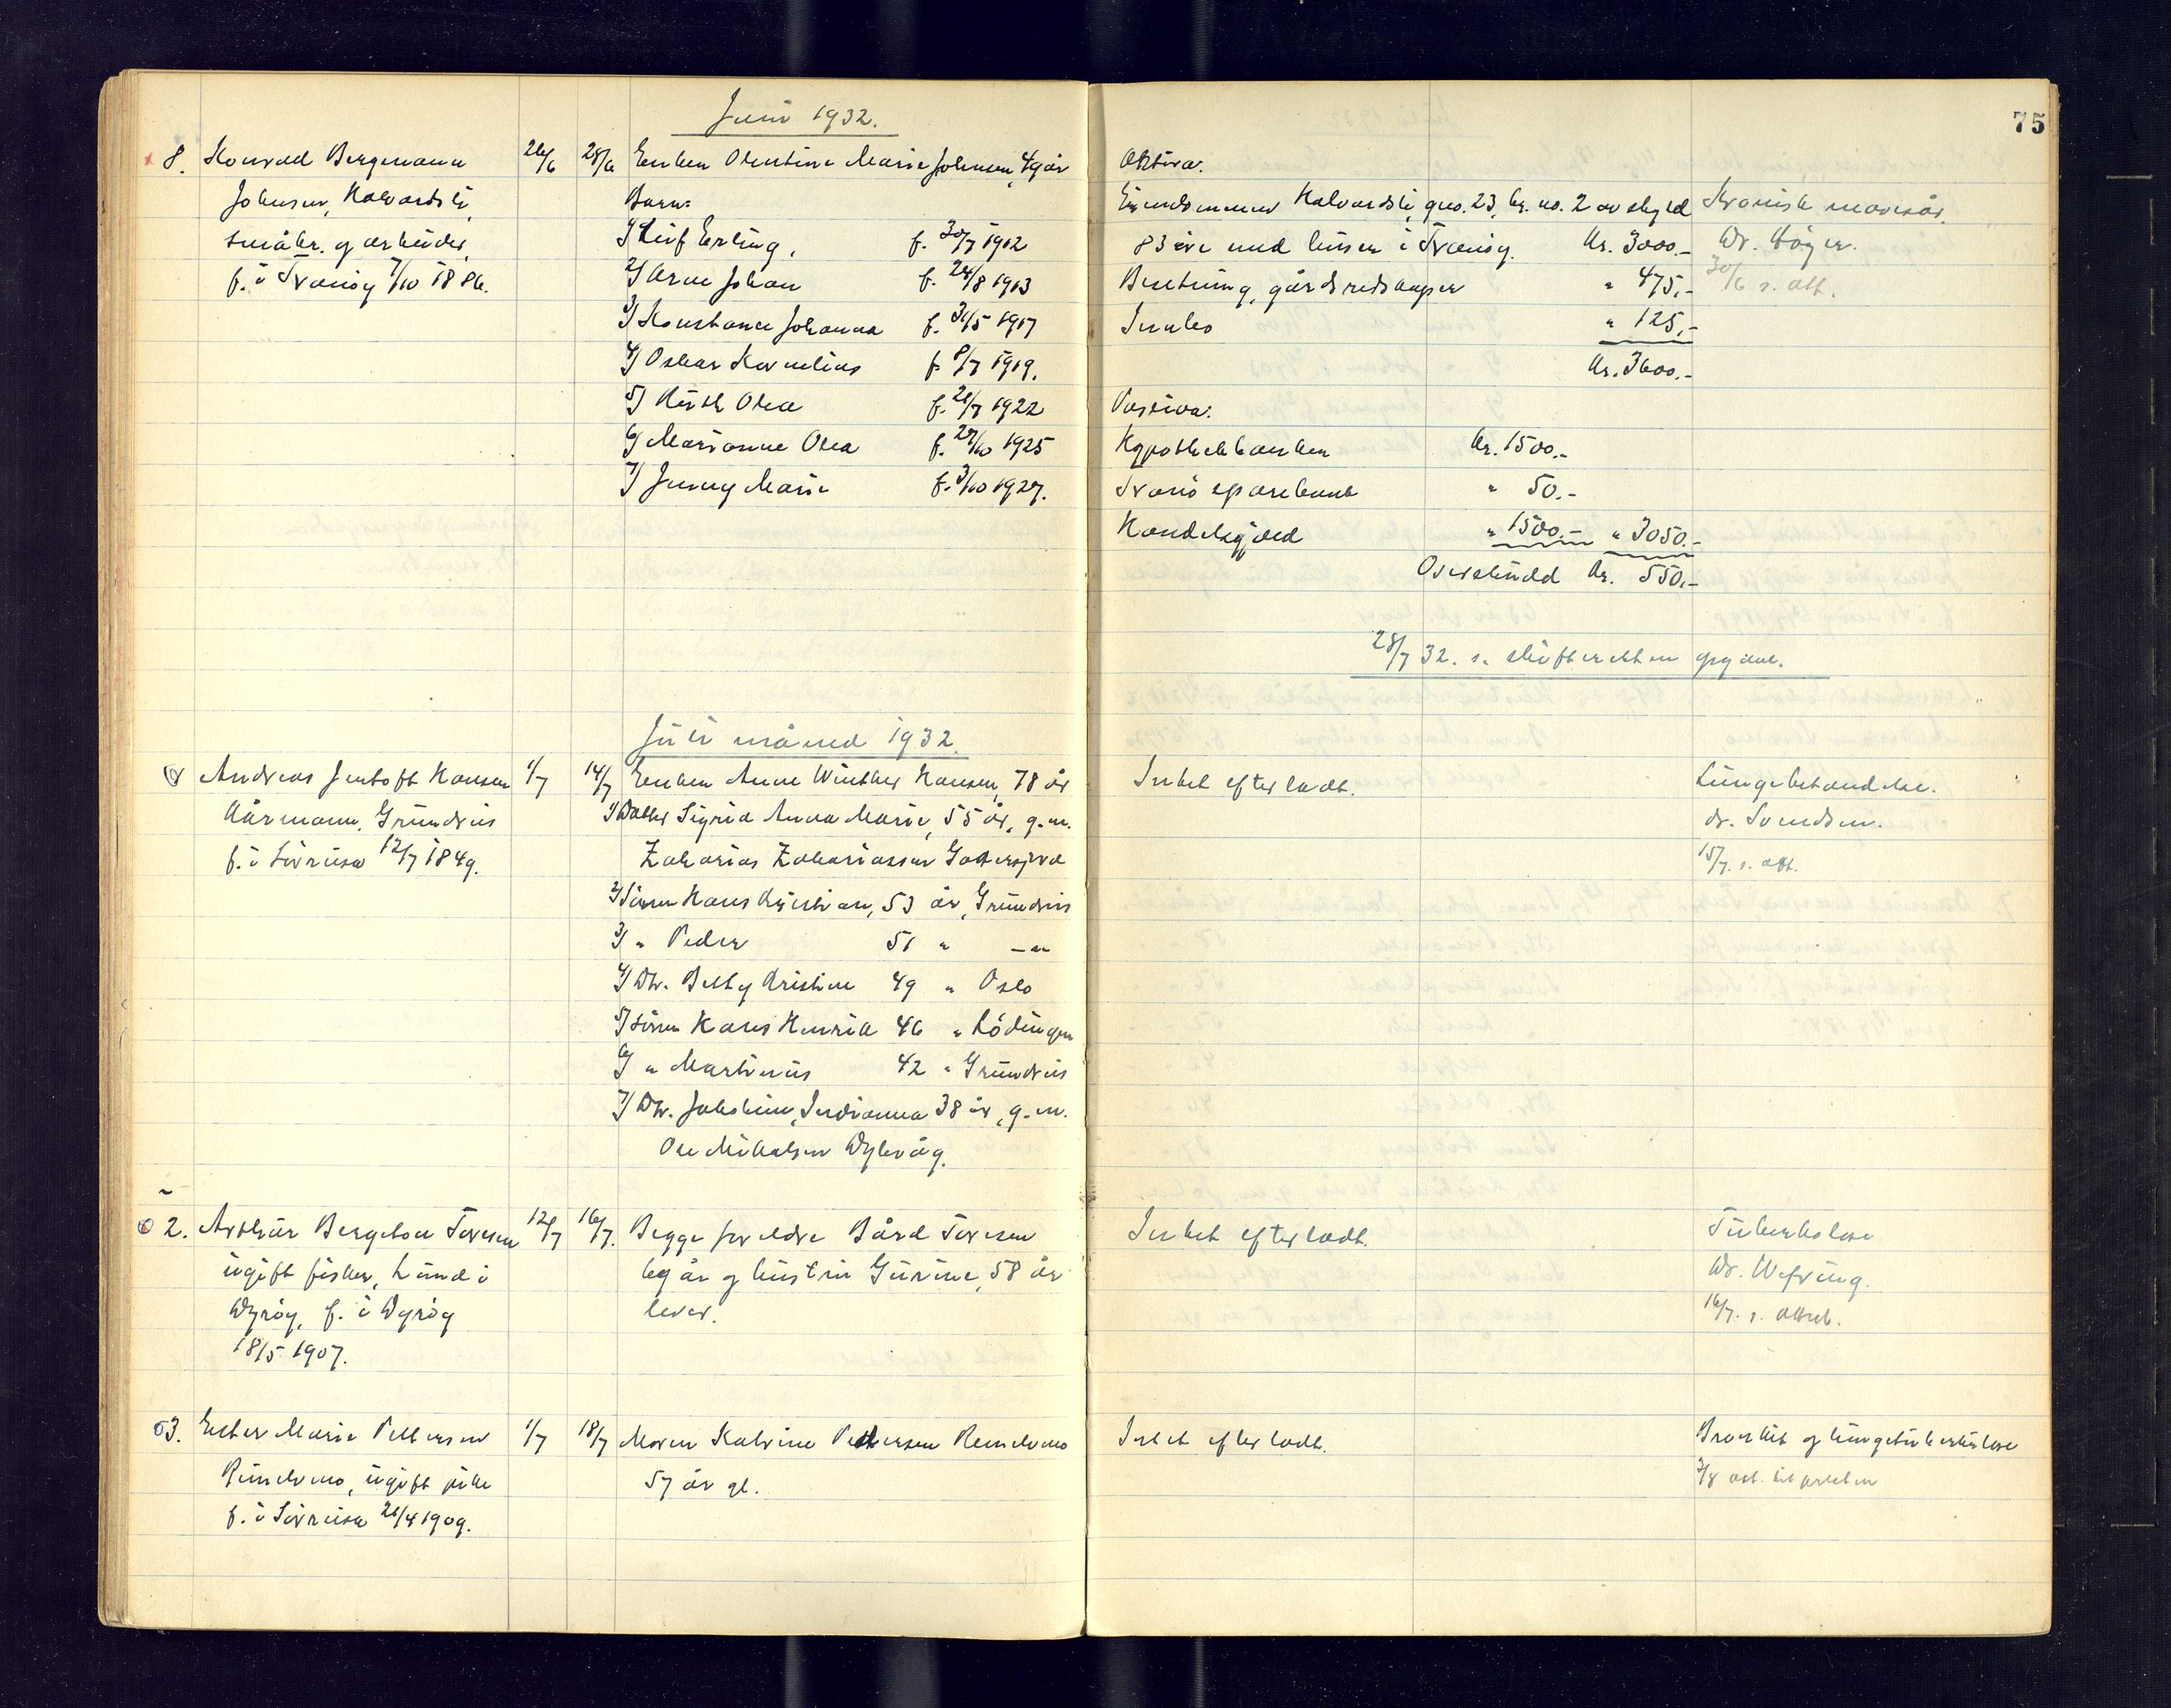 75
Juni 1932.
8. Konrad Bergmann
Johnsen, Halvardsli,
småbr. og arbeider,
f. i Tranöy 7/10 1886.
26/6 28/6 Enken Olentine Marie Johnsen, 49 år
Barn:
1) Leif Erling, f. 30/7 1912
2) Arne Johan f. 24/8 1913
3) Konstance Johanna f. 31/5 1917
4) Oskar Kornelius f. 8/7 1919.
5) Ruth Olea f. 21/7 1922
6) Marianne Olea f. 27/10 1925
7) Jenny Marie f. 3/10 1927.
Aktiva:
Eiendommen Halvardsli, gno. 23, br. no. 2 av skyld
83 øre med huser i Tranöy. Kr. 3000.-
Besetning, gårdsredskaper " 475,-
Innbo " 125,-
Kr. 3600.-
Passiva:
Hypothekbanken kr. 1500.-
Tranö sparebank " 50.-
Handelsgjeld " 1500.- " 3050.-
Overskudd kr. 550,-
28/7 32. s. skifteretten
Kronisk mavesår.
Dr. Höyer.
30/6 s. att.
Juli måned 1932.
Andreas Jentoft Hansen
Kårmann, Grundvis
f. i Sörreisa 12/7 1849.
1/7 14/7 Enken Anne Winther Hansen, 78 år
1) Datter Sigrid Anna Marie, 55 år, g. m.
Zakarias Zakariassen
2) Sönn Hans Kristian, 53 år, Grundvis
3) " Peder 51 " —"—
4) Dtr. Betty Kristine 49 " Oslo
5) Sönn Hans Henrik 46 " Lödingen
6) " Martinus 42 " Grundvis
7) Dtr. Jakobine Indianna 38 år, g. m.
Ole Mikalsen Dyrvåg.
Intet efterladt.
Lungebetændelse.
dr. Svendsen.
15/7. s. att.
2. Arthur Bergeton Toresen
ugift fisker, Lund i
Dyröy, f. i Dyröy
18/5 1907.
12/7 16/7. Begge foreldre Bård Toresen
69 år og hustru Gurine, 58 år
lever.
Intet efterladt.
Tuberkulose
Dr. Wefring.
16/7. s. attest.
3. Ester Marie Pettersen
Reindmo, ugift pike
f. i Sörreisa 21/4 1909.
1/7 18/7 Moren Katrine Pettersen Reindmo
57 år gl.
Intet efterladt.
Bronkit og lungetuberkulose
2/8 att. til presten